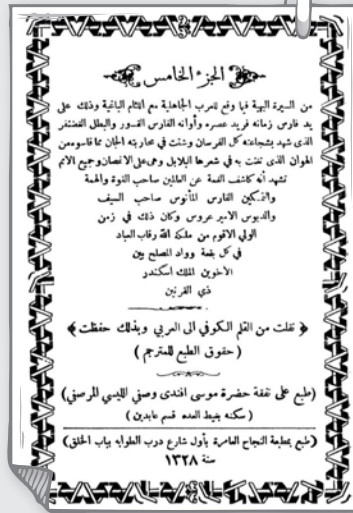 الجزء الخامس
من السيرة البهية فيما وقع للعرب الجاهلية مع اللئام الباغية وذلك على
يد فارس زمانه فريد عصره وأوانه الفارس القسور والبطل الغضنفر
الذى شهد بشجاعته كل الفرسان وشتت في محاربته الجان ما قاسوه من
الهوان الذى تغنت به في شعرها البلابل وهى على الاغصان وجميع الانم
تشهد أنه كاشف الغمة عن العالمين صاحب القوة والهمة
والتمكين الفارس المأنوس صاحب السيف
والدبوس الامير عروس وكان ذلك في زمن
الولي الاقوم من ملكه الله رقاب العباد
في كل بقعة وواد المصلح بين
الاخوين الملك اسكندر
ذي القرنين
﴿ نقلت من القلم الكوفي الى العربي وبذلك حفظت ﴾
( حقوق الطبع للمترجم )
(طبع على نفقة حضرة موسى افندى وصفي الليسي المرصفي)
( سكنه بغيط العده قسم عابدين )
(طبع بمطبعة النجاح العامرة بأول شارع درب الطوابه بباب الخلق)
سنة ١٣٢٨